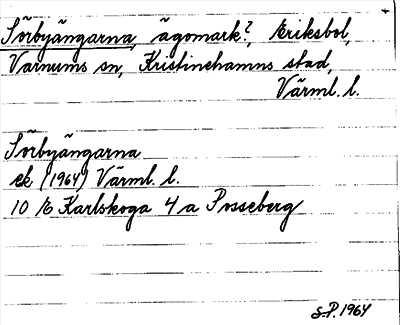 Sörbyängarna, ägomark?, Eriksbol,
Varnums sn, Kristinehamns stad,
Värml. l.
Sörbyängarna
ek (1964) Värml. l.
10 E Karlskoga 4 a Posseberg
S.P. 1964